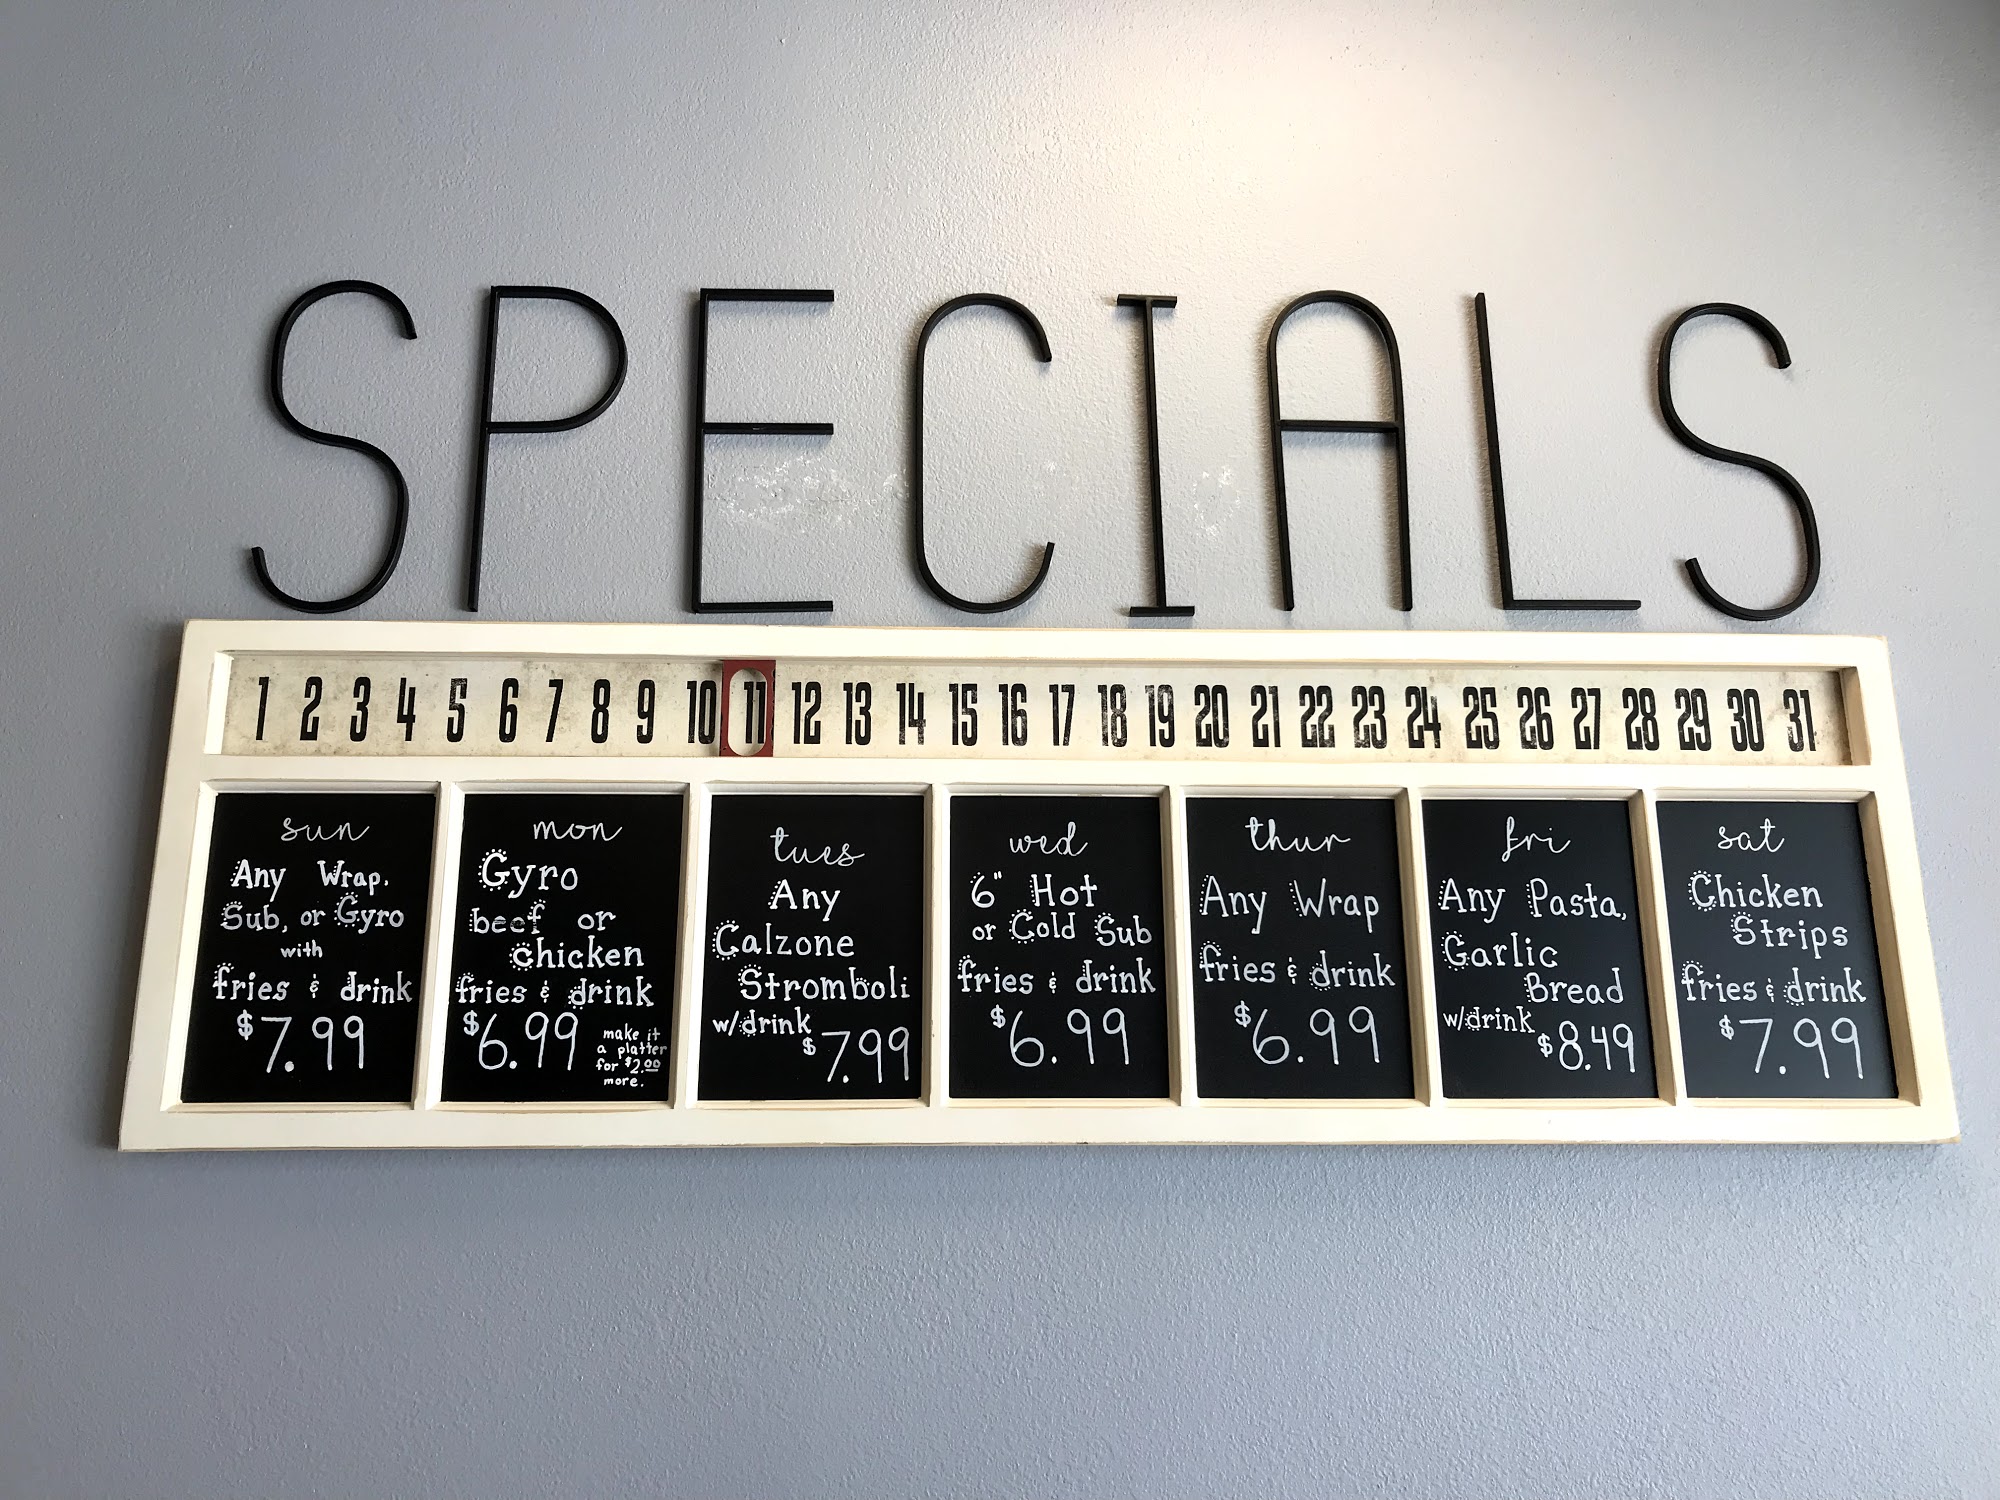 SPECIALS
1 2 3 4 5 6 7 8 9 10 11 12 13 14 15 16 17 18 19 20 21 22 23 24 25 26 27 28 29 30 31
sun
Any Wrap.
Sub, or Gyro
with
fries & drink
$7.99
mon
Gyro
beef or
chicken
fries & drink
$6.99
make it
a platter
for $2.00
more.
tues
Any
Calzone
Stromboli
w/drink
$7.99
wed
6" Hot
or Cold Sub
fries & drink
$6.99
thur
Any Wrap
fries & drink
$6.99
fri
Any Pasta,
Garlic
Bread
w/drink
$8.49
sat
Chicken
Strips
fries & drink
$7.99